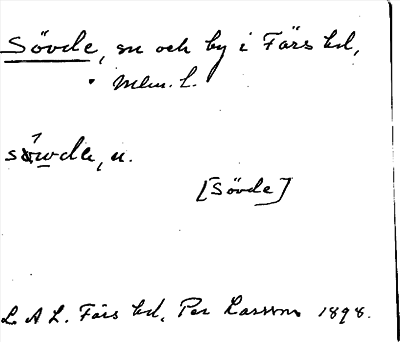 Sövde, sn och by i Färs hd,
Mlm. l.
sö́wde, n.
[Sövde]
L A L. Färs hd, Per Larsson 1898.